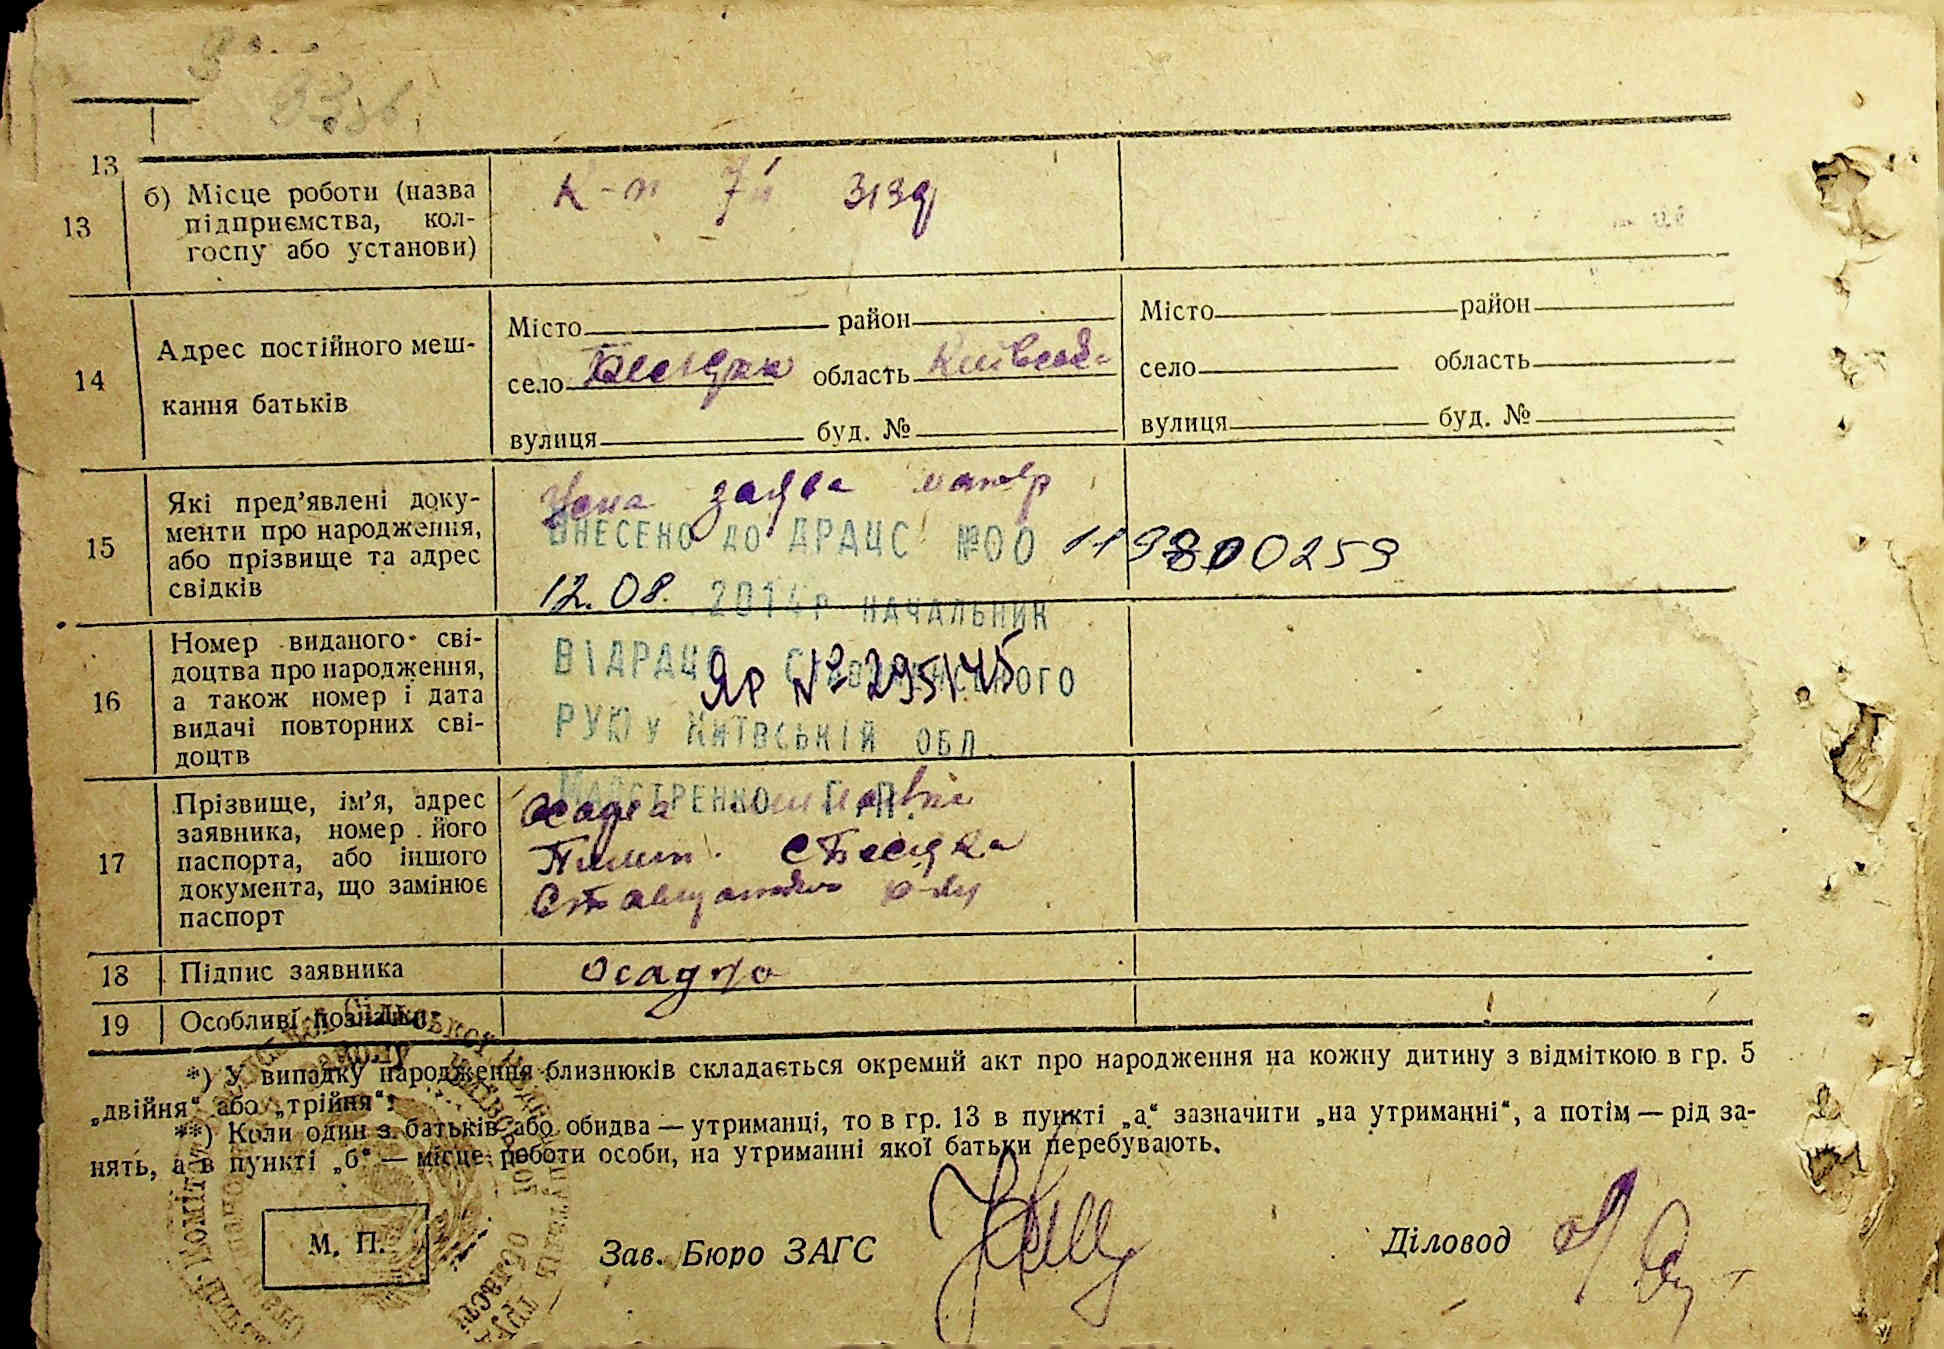 13
б) Місце роботи (назва
підприємства, кол-
госпу або установи)
13
К-п 7й зізд
14
Адрес постійного меш-
кання батьків
Місто район
село Бесідки область Київськ-
вулиця буд. №
Місто район
село область
вулиця буд. №
15
Які пред’явлені доку-
менти про народження,
або прізвище та адрес
свідків
Усна заява матер
ВНЕСЕНО ДО ДРАЦС №00 119800259
12.08. 2014р НАЧАЛЬНИК
16
Номер виданого сві-
доцтва про народження,
а також номер і дата
видачі повторних сві-
доцтв
ВІДРАЦС СТАВИЩЕНСЬКОГО
ЯР № 295145
РУЮ У КИЇВСЬКІЙ ОБЛ.
МАЙСТРЕНКО Г.П.
17
Прізвище, ім’я, адрес
заявника, номер його
паспорта, або іншого
документа, що замінює
паспорт
с Бесідка
18
Підпис заявника
Осадча
19
Особливі позначки
*) У випадку народження близнюків складається окремий акт про народження на кожну дитину з відміткою в гр. 5
„двійня“ або „трійня“.
**) Коли один з батьків або обидва — утриманці, то в гр. 13 в пункті „а“ зазначити „на утриманні“, а потім — рід за-
нять, а в пункті „б“ — місце роботи особи, на утриманні якої батьки перебувають.
М. П.
Зав. Бюро ЗАГС
Діловод